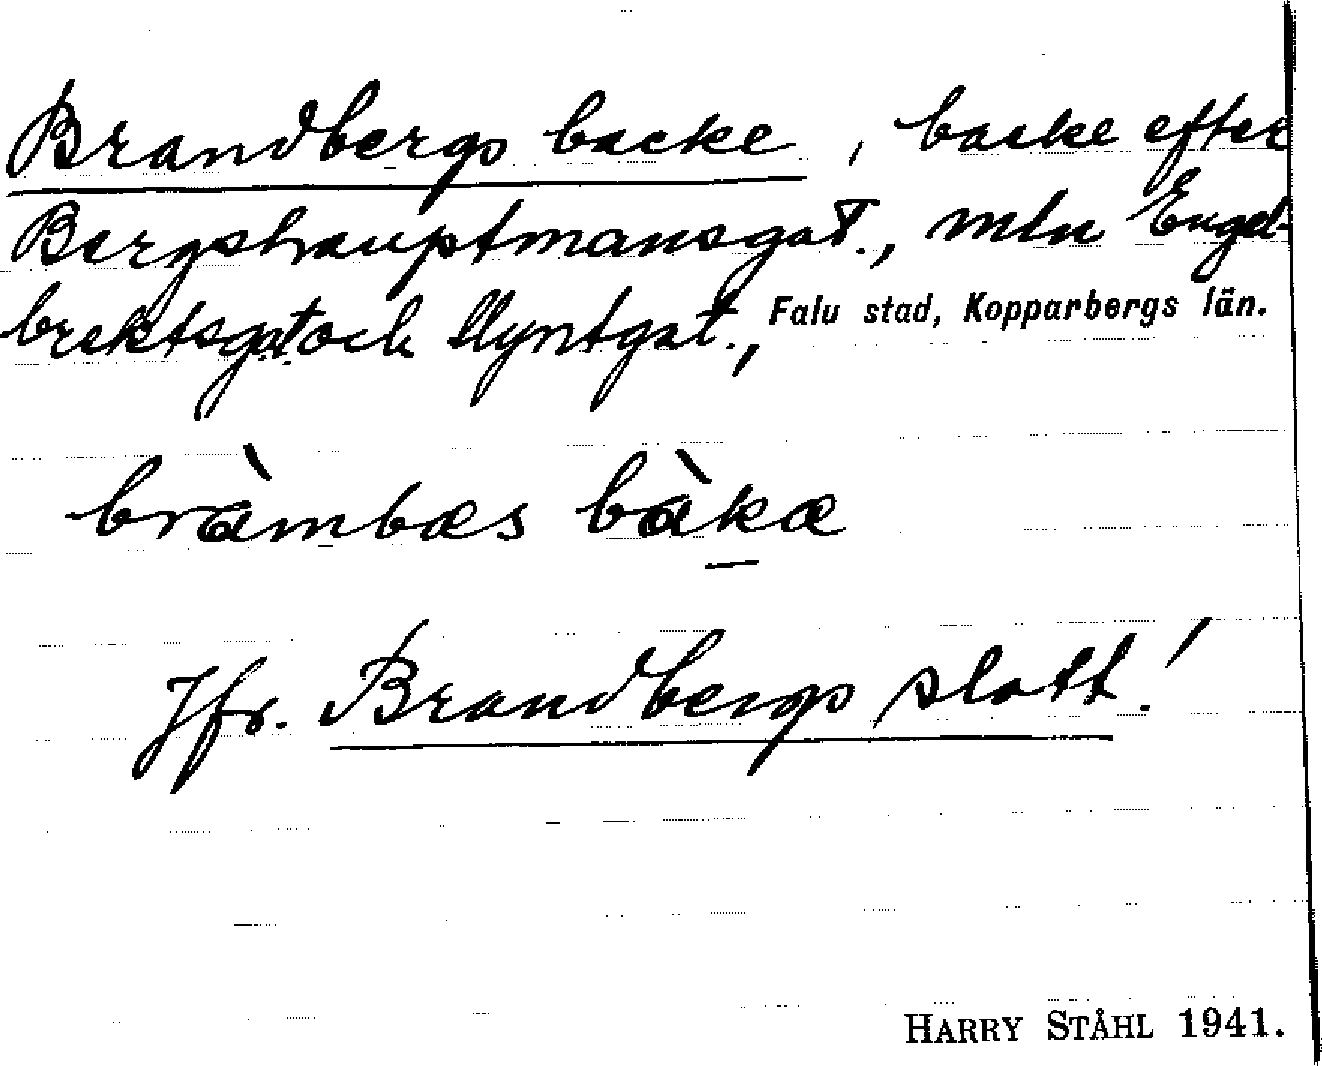 Brandbergs backe, backe efter
Bergshauptmansgat., mln Engel-
brektsgat och Slyntgat., Falu stad, Kopparbergs län.
bràmbæs bàkæ
Jfr. Brandbergs slott!
HARRY STÅHL 1941.